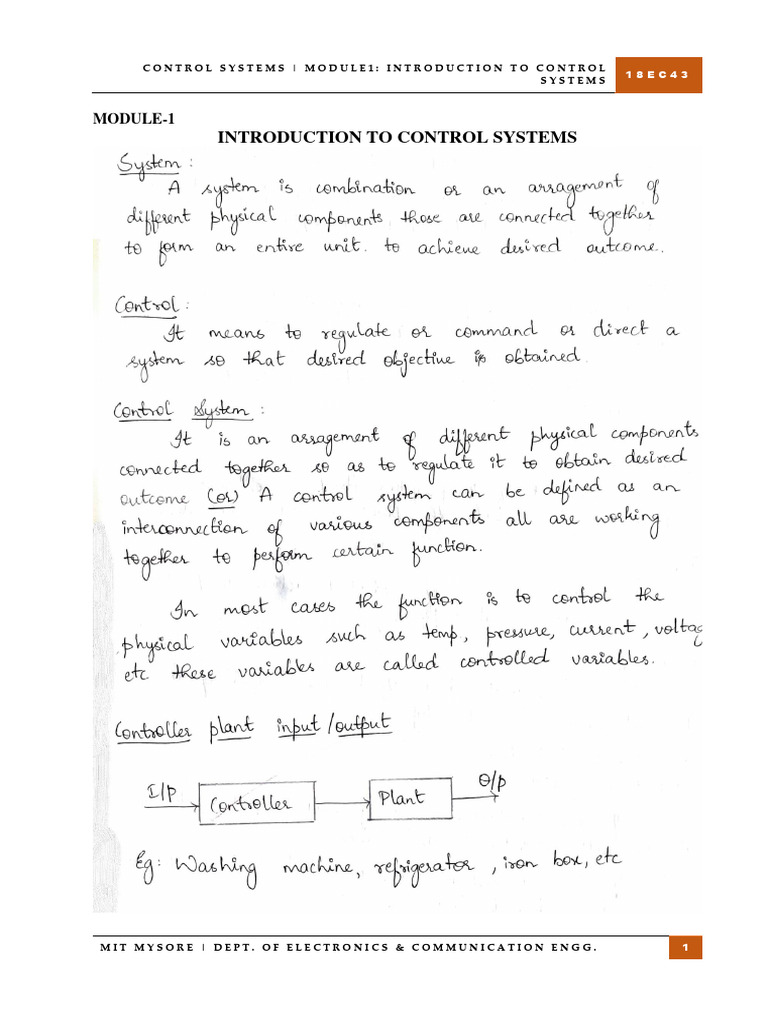 CONTROL SYSTEMS | MODULE1: INTRODUCTION TO CONTROL
SYSTEMS
18EC43
MODULE-1
INTRODUCTION TO CONTROL SYSTEMS
System:
A system is combination or an arragement of
different physical components those are connected together
to form an entire unit. to achieve desired outcome.
Control:
It means to regulate or command or direct a
system so that desired objective is obtained.
Control System:
It is an arragement of different physical components
connected together so as to regulate it to obtain desired
outcome (or) A control system can be defined as an
interconnection of various components all are working
together to perform certain function.
In most cases the function is to control the
physical variables such as temp, pressure, current, voltag
etc these variables are called controlled variables.
Controller plant input/output
I/p
Controller
Plant
O/p
Eg: Washing machine, refrigerator, iron box, etc
MIT MYSORE | DEPT. OF ELECTRONICS & COMMUNICATION ENGG.
1